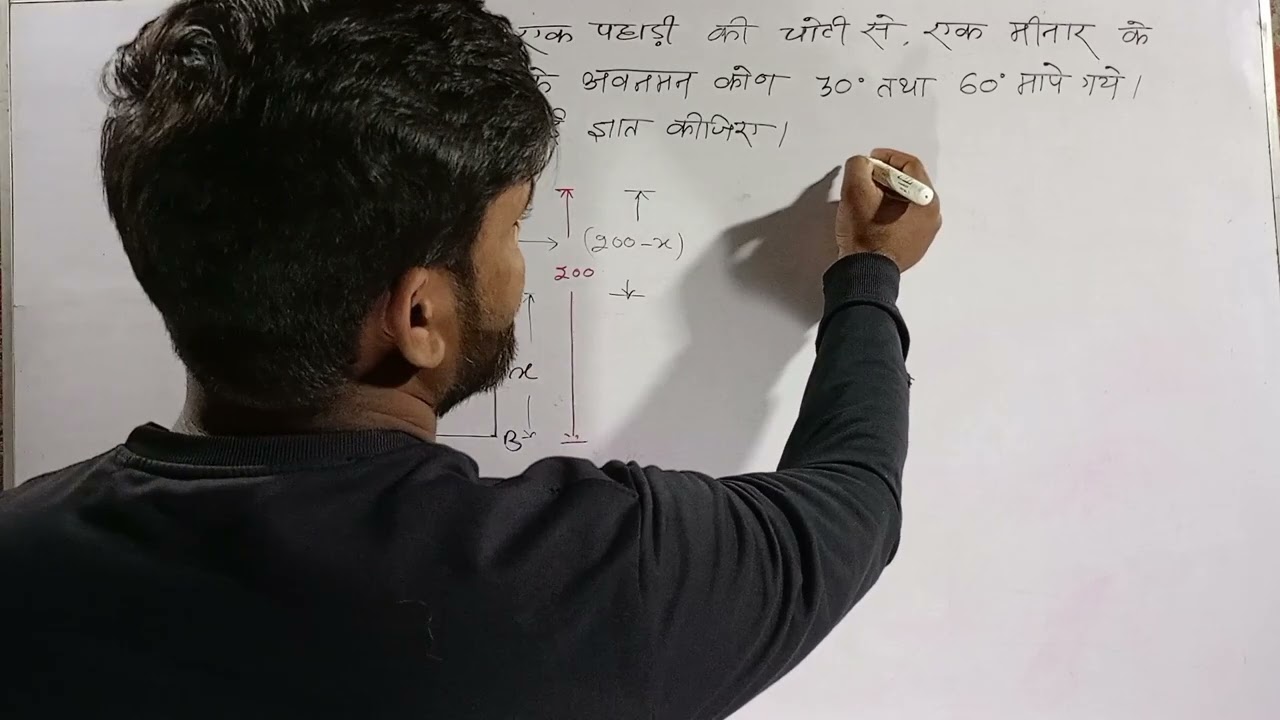 एक पहाड़ी की चोटी से, एक मीनार के
के अवनमन कोण 30° तथा 60° मापे गये।
ज्ञात कीजिए।
(200-x)
200
x
B